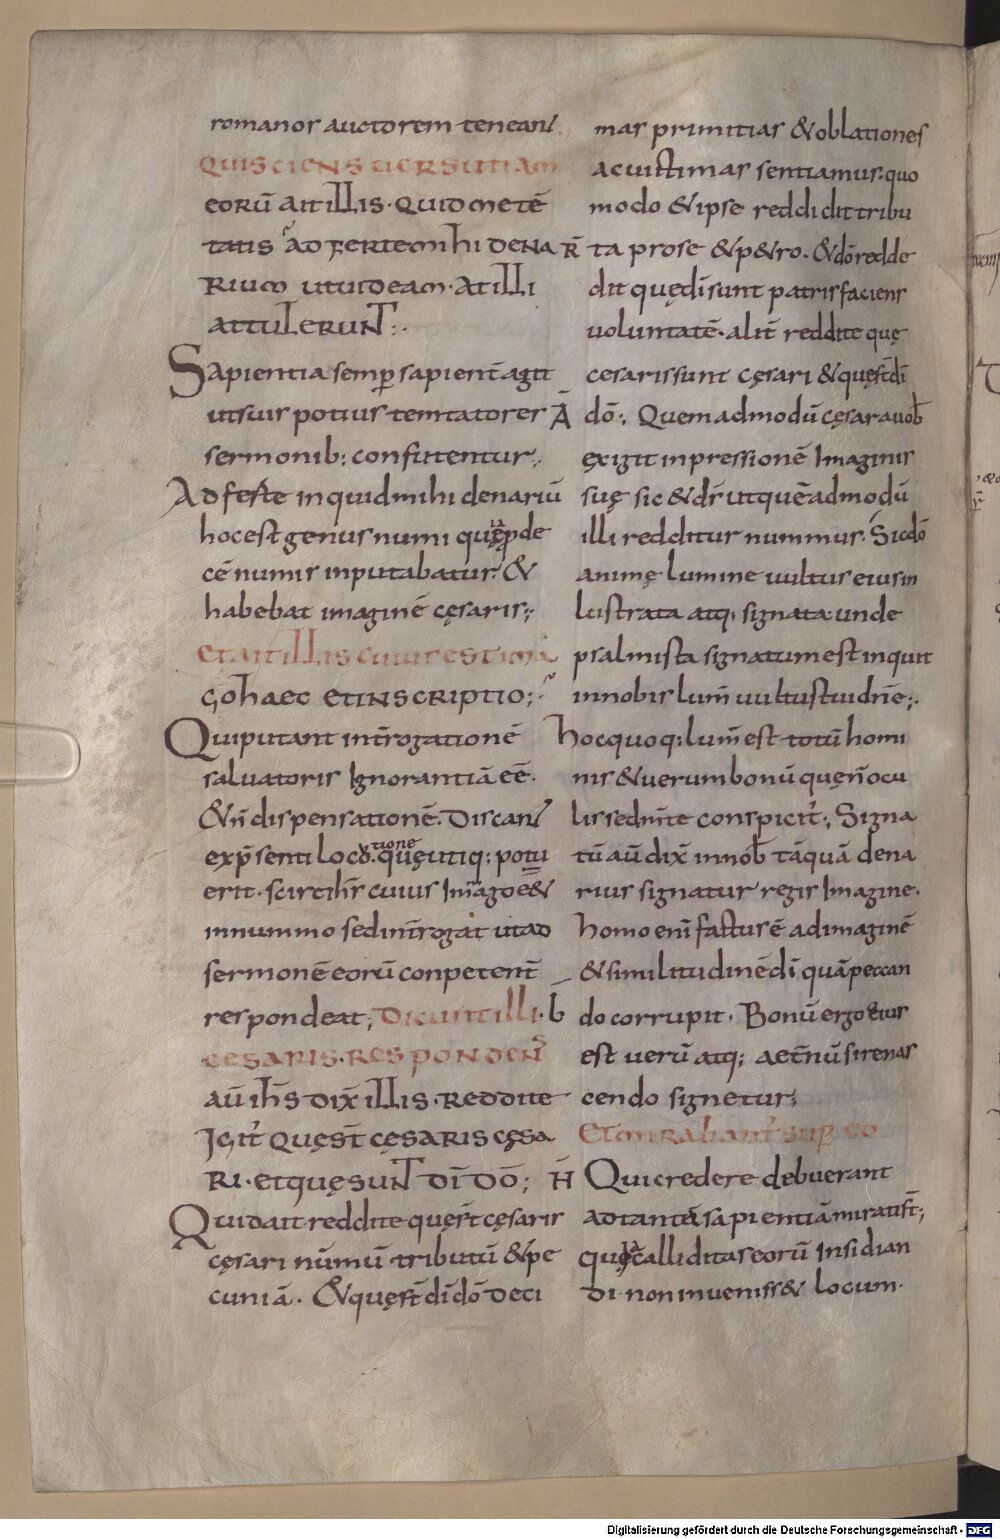 romanor auctorem teneant
QUISCIENS UERSUTIAM
EORŪ AIT ILLIS· QUID METĒ
TATIS ADFERTE MIHI DENA R̄
RIUM UT UIDEAM· AT ILLI
ATTULERUNT:·
Sapientia semꝑ sapient̄ agit
ut suis potius temtatores Ā
sermonib; confutentur;
Adferte inquid mihi denariū
hoc est genus numi quę p de
cē numis inputabatur· &
habebat imaginē cęsaris;
ET AIT ILLIS CUIUS EST IMA
GO HAEC ET INSCRIPTIO;
Qui putant int̄rogationē
saluatoris Ignorantiā eē·
& n̄ dispensationē· Discant
ex p̄senti loco· quę utiq; potu
tione
erit· scire ih̄s cuius Imago ēēt
in nummo sed int̄rogat ut ad
sermonē eorū conpetent̄
respondeat; DICUNT ILLI· b
CESARIS· RESPONDENS
aū ih̄s dix̄ illis· Reddite
Igit̄ quę st̄ cęsaris cęsa
RI· et quę sunt dī dō; H̄
Quid ait reddite quę st̄ cęsaris
cęsari nūmū tributū & pe
cuniā· & quę st̄ dī dō deci
mas primitias & oblationes
ac uictimas sentiamus· quo
modo & ipse reddidit tribu
ta pro se & p&ro· & dō redde
dit quę dī sunt patris faciens
uoluntatē· alit̄ reddite quę
cesaris sunt cęsari & quę st̄ dī
dō; Quemadmodū cęsar a uob̄
exigit inpressionē Imaginis
suę sic & dś ut quēadmodū
illi redditur nummus· Sic dō
animę lumine uultus eius in
lustrata atq; signata· unde
psalmista signatum est inquit
in nobis lum̄ uultus tui dn̄e;
Hoc quoq; lum̄ est totū homi
nis & uerum bonū que n̄ ocu
lis sed m̄te conspicit̄; Signa
tū aū dix̄ in nob̄ tāquā dena
rius signatur regis Imagine·
homo eni factus ē ad imaginē
& similitudinē dī quā peccan
do corrupit· Bonū ergo eius
est uerū atq; aet̄nū si renas
cendo signetur;
ET MIRABANT̄ SUꝑ EO
Qui credere debuerant
ad tantā sapientiā mirati st̄;
quę calliditas eorū Insidian
di· non inueniss& locum·
Digitalisierung gefördert durch die Deutsche Forschungsgemeinschaft - DFG